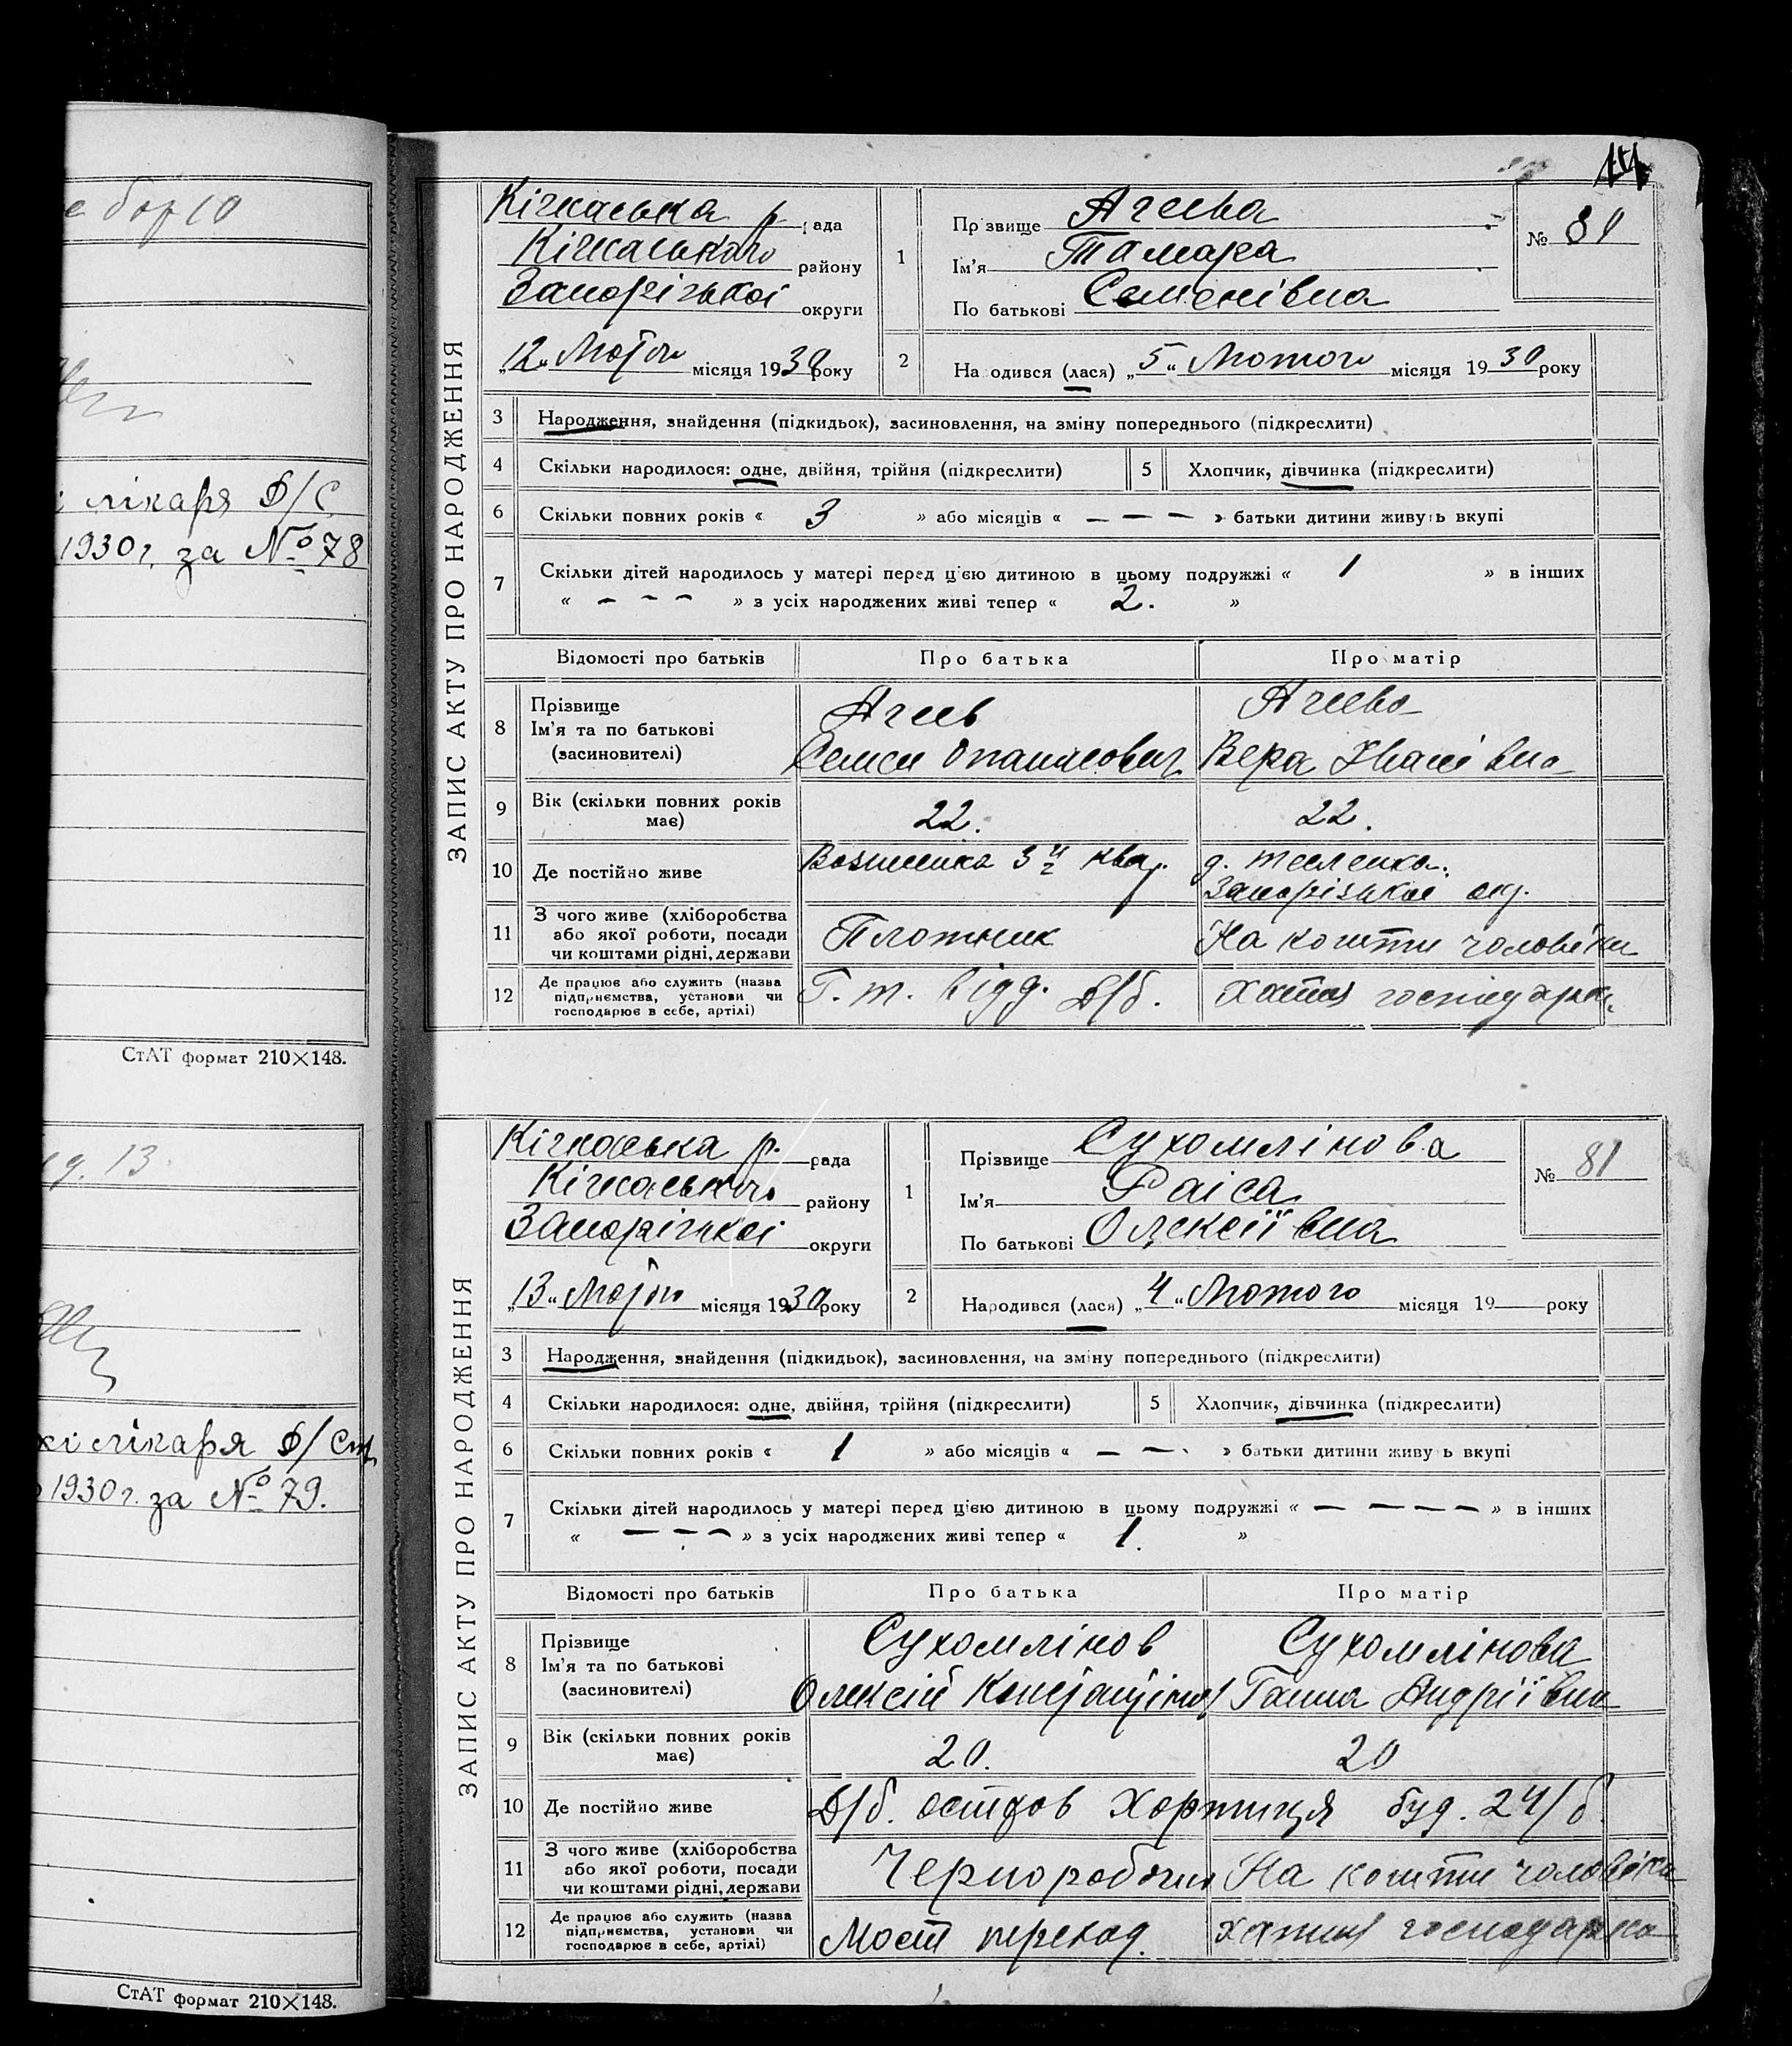 е бор 10
лікаря Д/С
1930 г. за № 78
СтАТ формат 210×148.
д. 13.
кі лікаря Д/Ст
1930 г. за № 79.
СтАТ формат 210×148.
ЗАПИС АКТУ ПРО НАРОДЖЕННЯ
Кічкаська р. рада
Кічкаського району
Запорізької округи
„12“ Лютого місяця 1930 року
1 Прізвище Агеева
Ім'я Тамара
По батькові Семенівна
№ 80
2 Народився (лася) „5“ Лютого місяця 1930 року
3 Народження, знайдення (підкидьок), засиновлення, на зміну попереднього (підкреслити)
4 Скільки народилося: одне, двійня, трійня (підкреслити) 5 Хлопчик, дівчинка (підкреслити)
6 Скільки повних років « 3 » або місяців « — — — » батьки дитини живуть вкупі
7 Скільки дітей народилось у матері перед цією дитиною в цьому подружжі « 1 » в інших
« — — — » з усіх народжених живі тепер « 2. »
Відомості про батьків Про батька Про матір
8 Прізвище Ім'я та по батькові (засновителі)
Агеев Агеева
Семен Опанасович Вера Іванівна
9 Вік (скільки повних років має) 22. 22.
10 Де постійно живе
Вознесенка 3 й кварт.
Запорізької окр.
11 З чого живе (хліборобства
або якої роботи, посади
чи коштами рідні, держави
Плотник На кошти чоловіка
12 Де працює або служить (назва
підприємства, установи чи
господарює в себе, артілі)
Г. т. відд. Д/б. Хатня господарка.
ЗАПИС АКТУ ПРО НАРОДЖЕННЯ
Кічкаська р. рада
Кічкаського району
Запорізької округи
„13“ Лютого місяця 1930 року
1 Прізвище Сухомлінова
Ім'я Раіса
По батькові Олексіївна
№ 81
2 Народився (лася) „4“ Лютого місяця 19 року
3 Народження, знайдення (підкидьок), засиновлення, на зміну попереднього (підкреслити)
4 Скільки народилося: одне, двійня, трійня (підкреслити) 5 Хлопчик, дівчинка (підкреслити)
6 Скільки повних років « 1 » або місяців « — — — » батьки дитини живуть вкупі
7 Скільки дітей народилось у матері перед цією дитиною в цьому подружжі « — — — — » в інших
« — — — » з усіх народжених живі тепер « 1. »
Відомості про батьків Про батька Про матір
8 Прізвище
Ім'я та по батькові
(засиновителі)
Сухомлінов Сухомлінова
Олексій Константінов Ганна Андріївна
9 Вік (скільки повних років має) 20. 20
10 Де постійно живе Д/б. остров Хортиця буд. 24/б.
11 З чого живе (хліборобства
або якої роботи, посади
чи коштами рідні, держави
Чернорабочий На кошти чоловіка
12 Де працює або служить (назва
підприємства, установи чи
господарює в себе, артілі)
Мост переход. хатня господарка